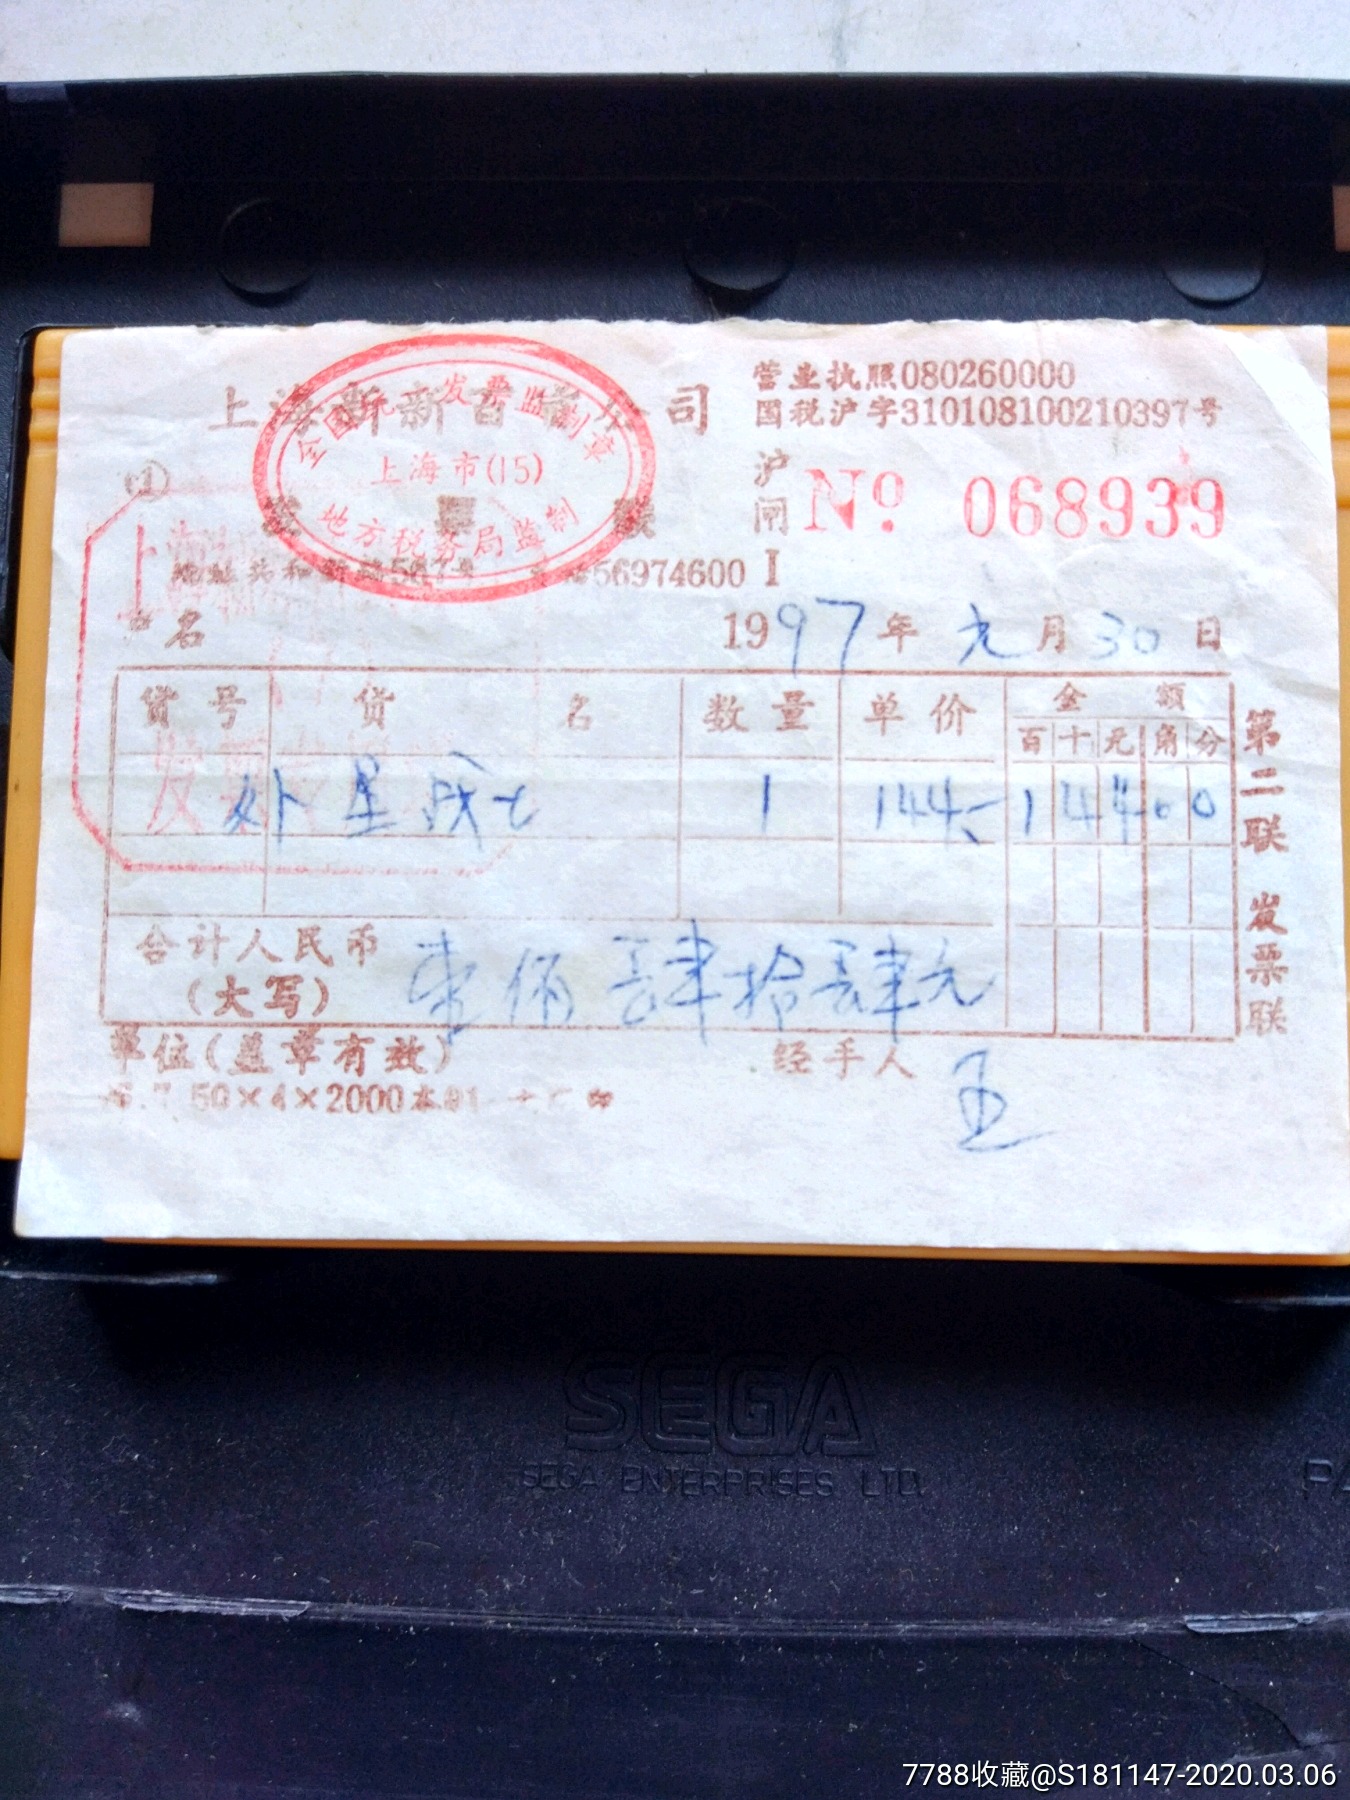 营业执照080260000
上海新新百 公司
国税沪字310108100210397号
全国统一发票监制章
上海市(15)
地方税务局监制
沪
闸
№ 068939
发票联
地址共和新路567号 56974600 I
户名
1997年 元月30日
货号 货名 数量 单价 金额
百十元角分
外星战士 1 144- 14400
合计人民币
(大写)
壹佰肆拾肆元
单位(盖章有效)
经手人 王
50×4×2000本
第二联 发票联
SEGA
SEGA ENTERPRISES LTD.
PA
7788收藏@S181147-2020.03.06